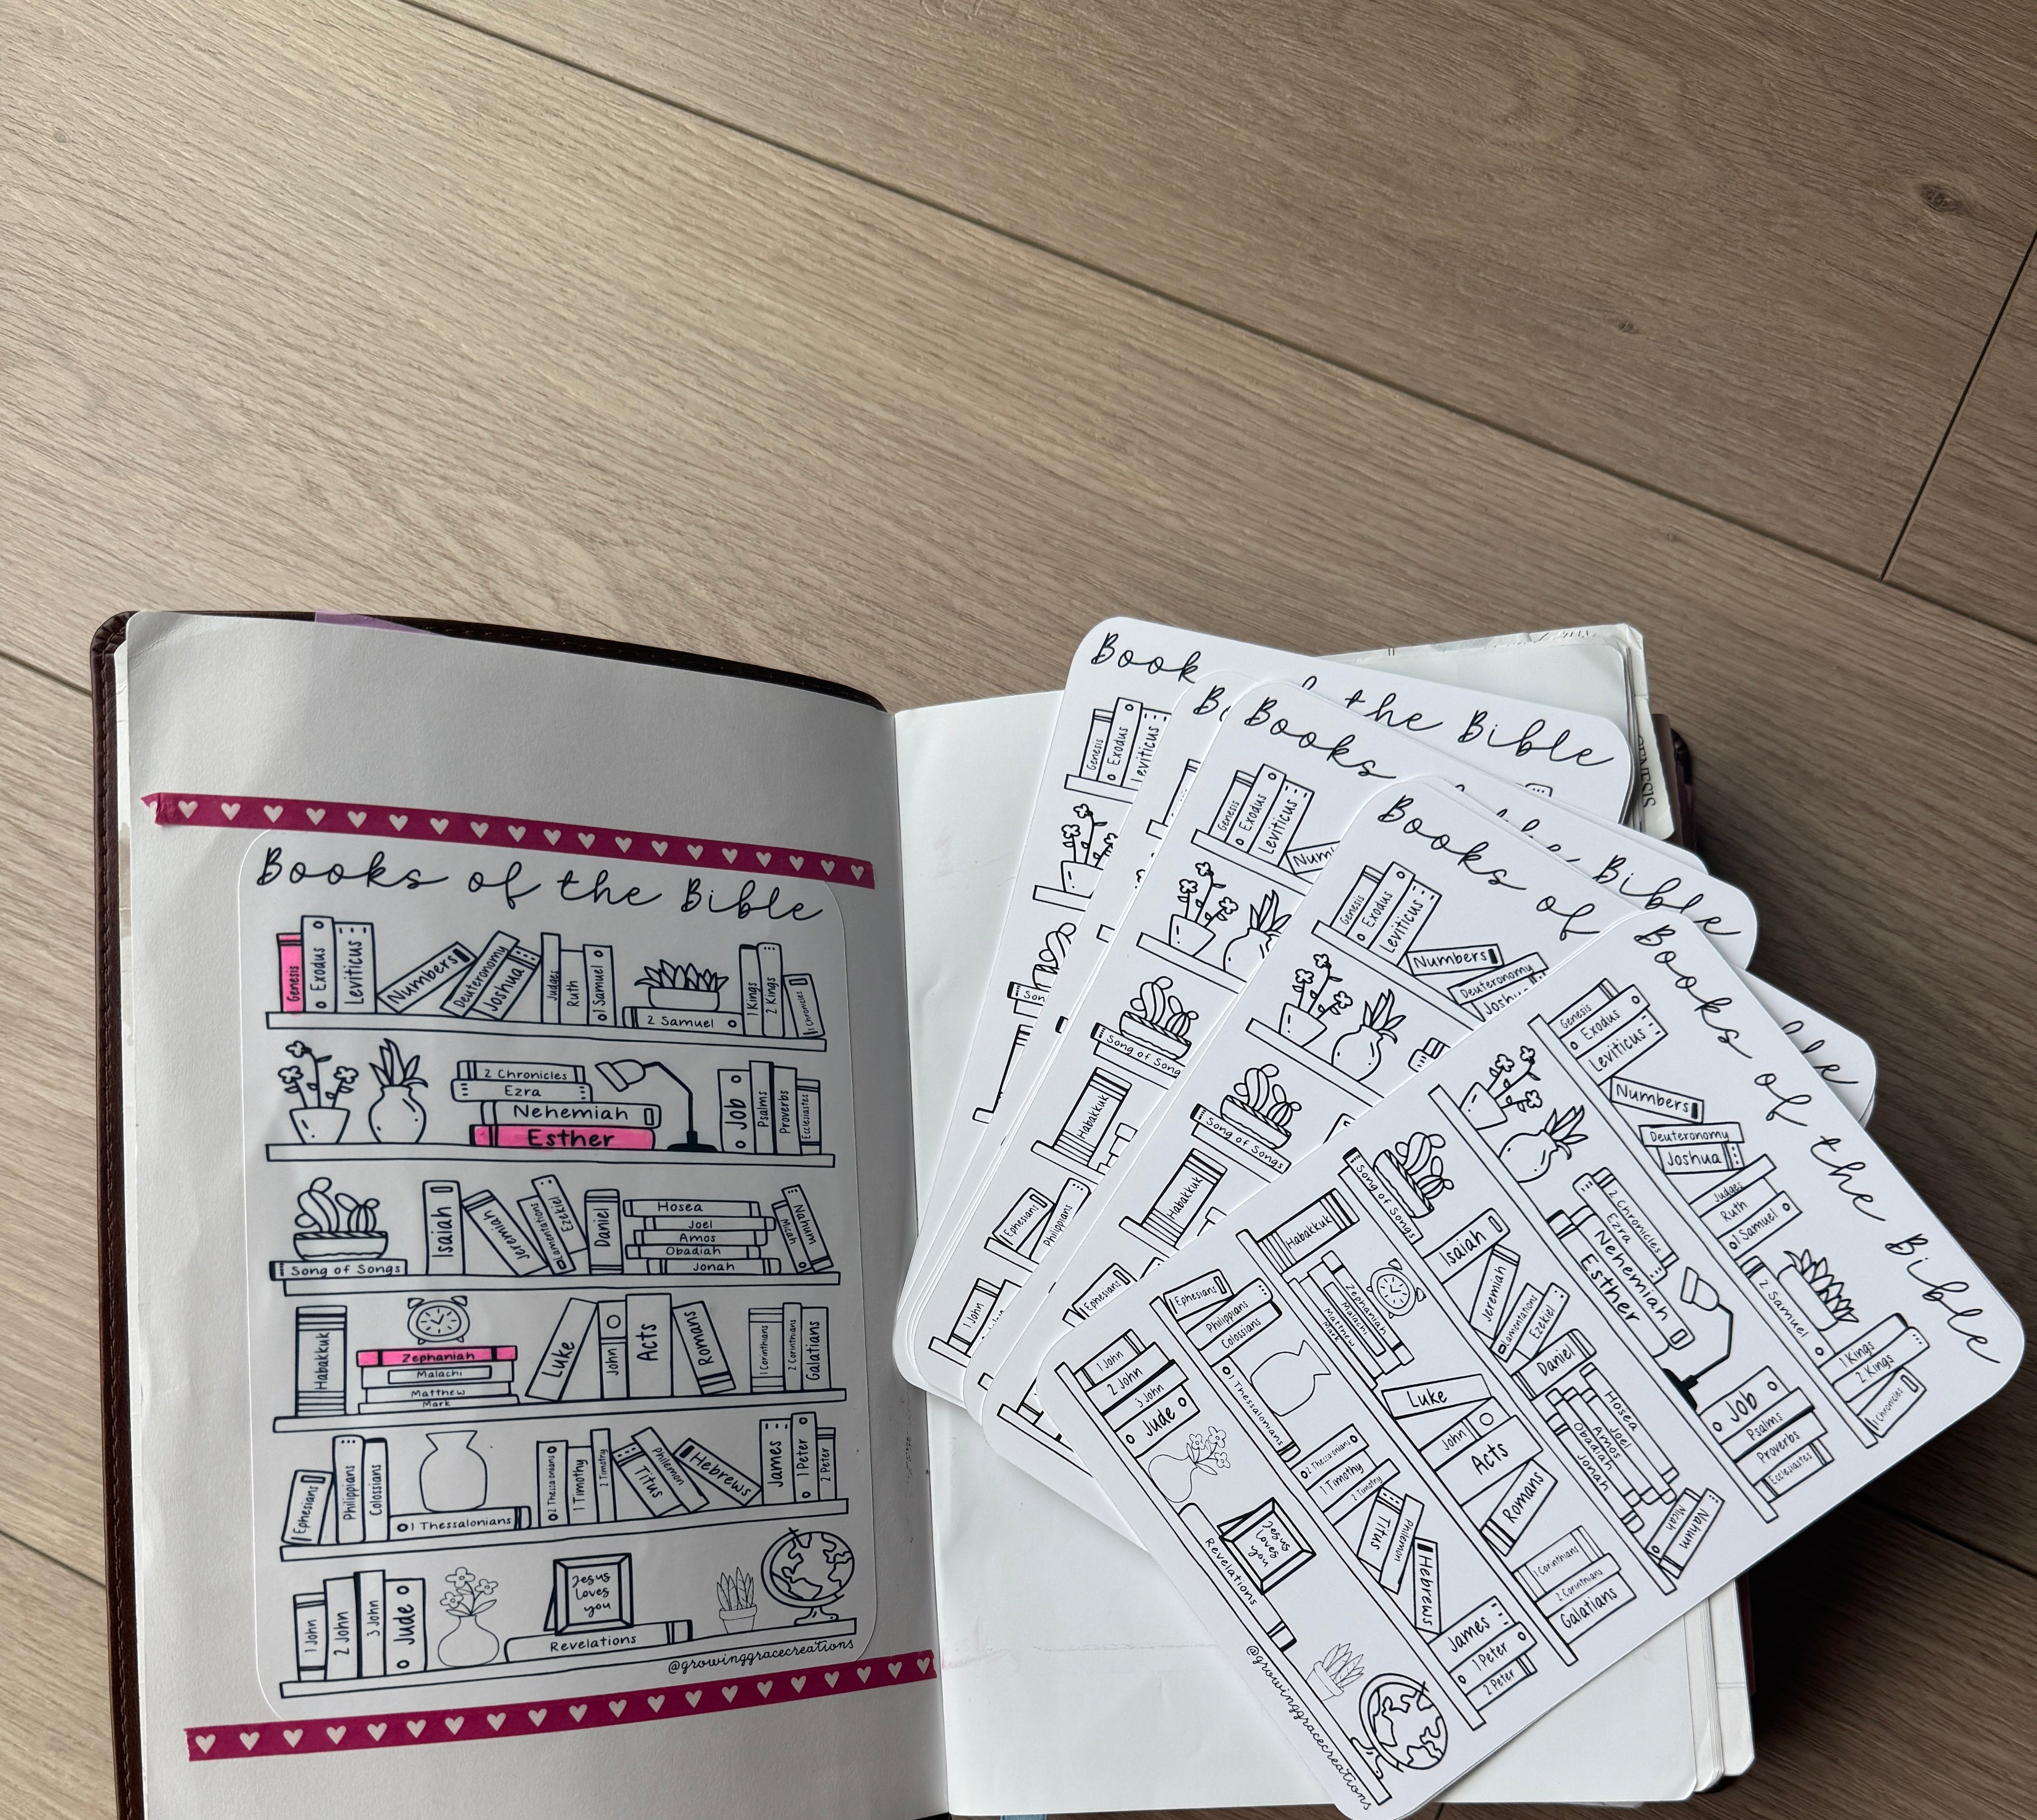 Books of the Bible
Genesis
Exodus
Leviticus
Numbers
Deuteronomy
Joshua
Judges
Ruth
1 Samuel
2 Samuel
1 Kings
2 Kings
1 Chronicles
2 Chronicles
Ezra
Nehemiah
Esther
Job
Psalms
Proverbs
Ecclesiastes
Song of Songs
Isaiah
Jeremiah
Lamentations
Ezekiel
Daniel
Hosea
Joel
Amos
Obadiah
Jonah
Micah
Nahum
Habakkuk
Zephaniah
Malachi
Matthew
Mark
Luke
John
Acts
Romans
1 Corinthians
2 Corinthians
Galatians
Ephesians
Philippians
Colossians
1 Thessalonians
2 Thessalonians
1 Timothy
2 Timothy
Titus
Philemon
Hebrews
James
1 Peter
2 Peter
1 John
2 John
3 John
Jude
Jesus
loves
you
Revelations
@growinggracecreations
Book the Bible
Genesis
Exodus
Leviticus
Son
Habakkuk
Ephesians
Philippians
1 John
Books
Bible
Genesis
Exodus
Leviticus
Num
Song of Song
Habakkuk
Ephesians
Books of
Genesis
Exodus
Leviticus
Numbers
Deuteronomy
Joshu
Song of Songs
Books of the Bible
Genesis
Exodus
Leviticus
Numbers
Deuteronomy
Joshua
Judges
Ruth
1 Samuel
2 Samuel
1 Kings
2 Kings
1 Chronicles
2 Chronicles
Ezra
Nehemiah
Esther
Job
Psalms
Proverbs
Ecclesiastes
Song of Songs
Isaiah
Jeremiah
Lamentations
Ezekiel
Daniel
Hosea
Joel
Amos
Obadiah
Jonah
Micah
Nahum
Habakkuk
Zephaniah
Malachi
Matthew
Mark
Luke
John
Acts
Romans
1 Corinthians
2 Corinthians
Galatians
Ephesians
Philippians
Colossians
1 Thessalonians
2 Thessalonians
1 Timothy
2 Timothy
Titus
Philemon
Hebrews
James
1 Peter
2 Peter
1 John
2 John
3 John
Jude
Jesus
loves
you
Revelations
@growinggracecreations
GENESIS